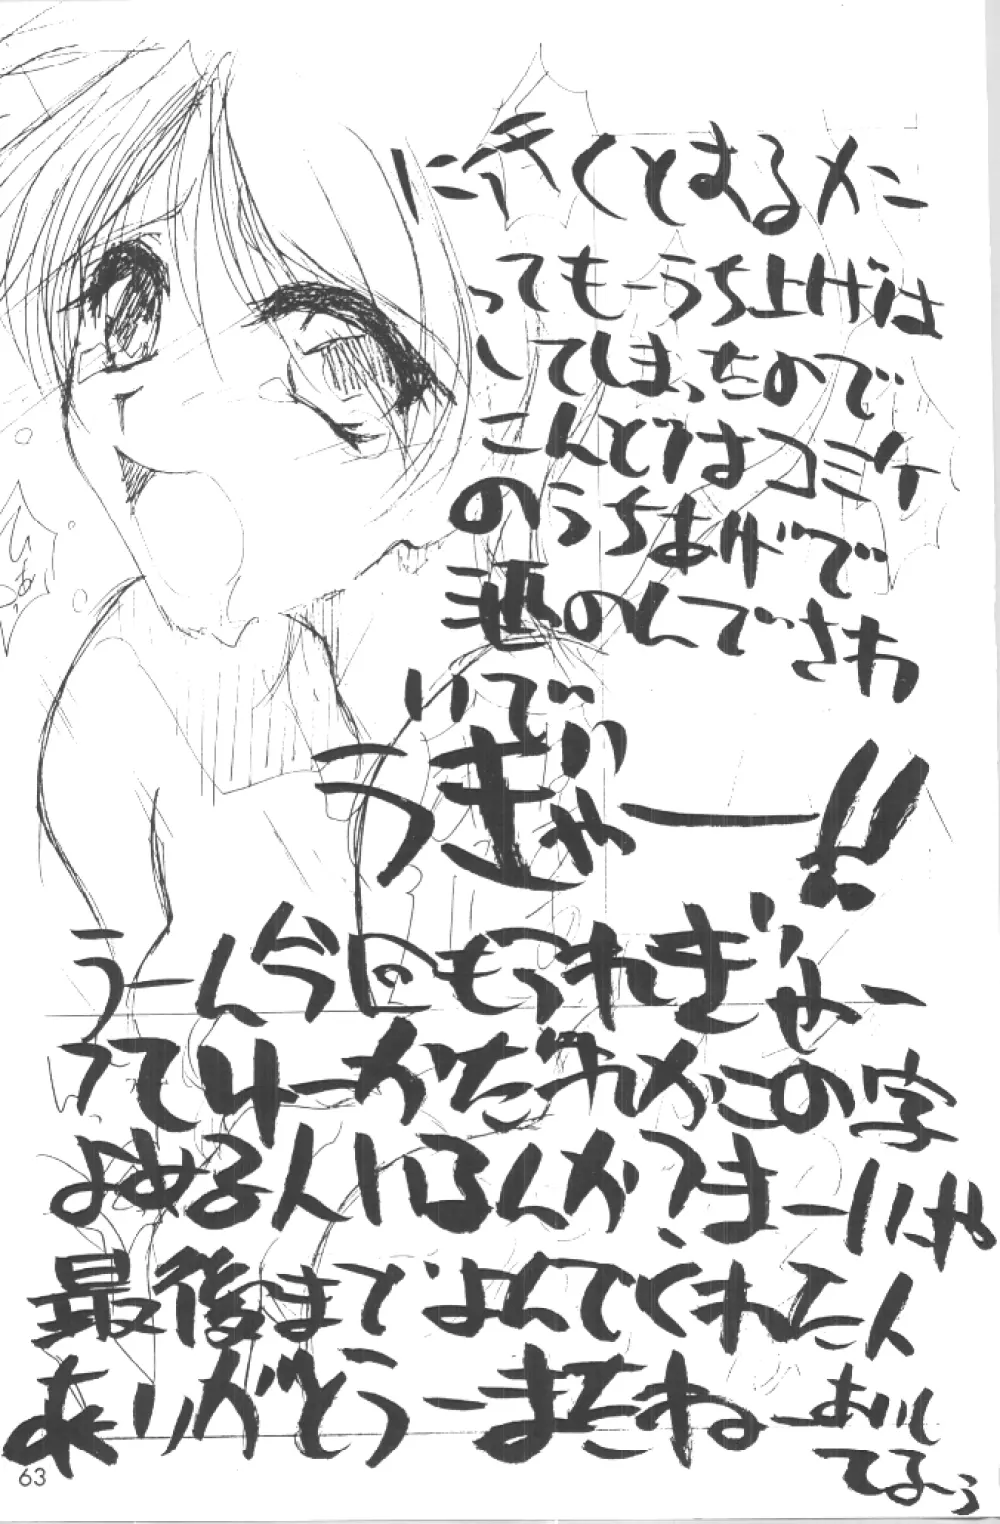 に行くとまるメン
ってもーうち上げは
してしまったので
こんどはコミケ
のうちあげで
酒のんでさわ
いで
うぎゃー!!
うーん今回もつれぎゃー
ってゆーかだれかこの字
よめる人いるんか?まーいいや
最後までよんでくれた人
ありがとうーまたねーあいし
てるーぅ
ひぁ
63